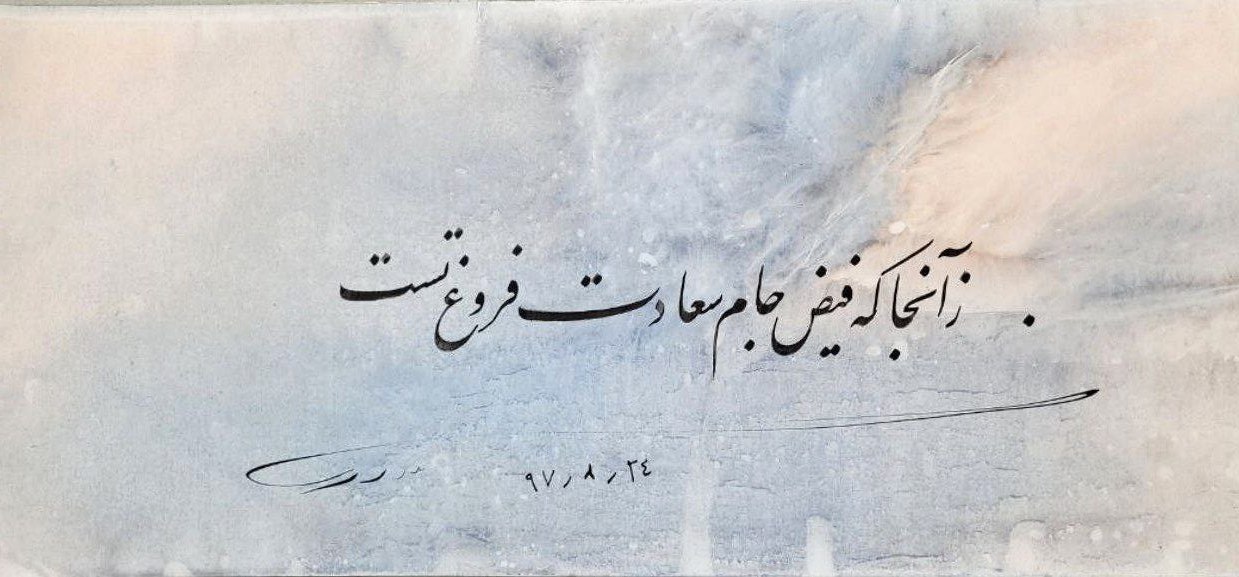 زآنجا که فیض جام سعادت فروغ تست
۹۷٫۸٫۲۴